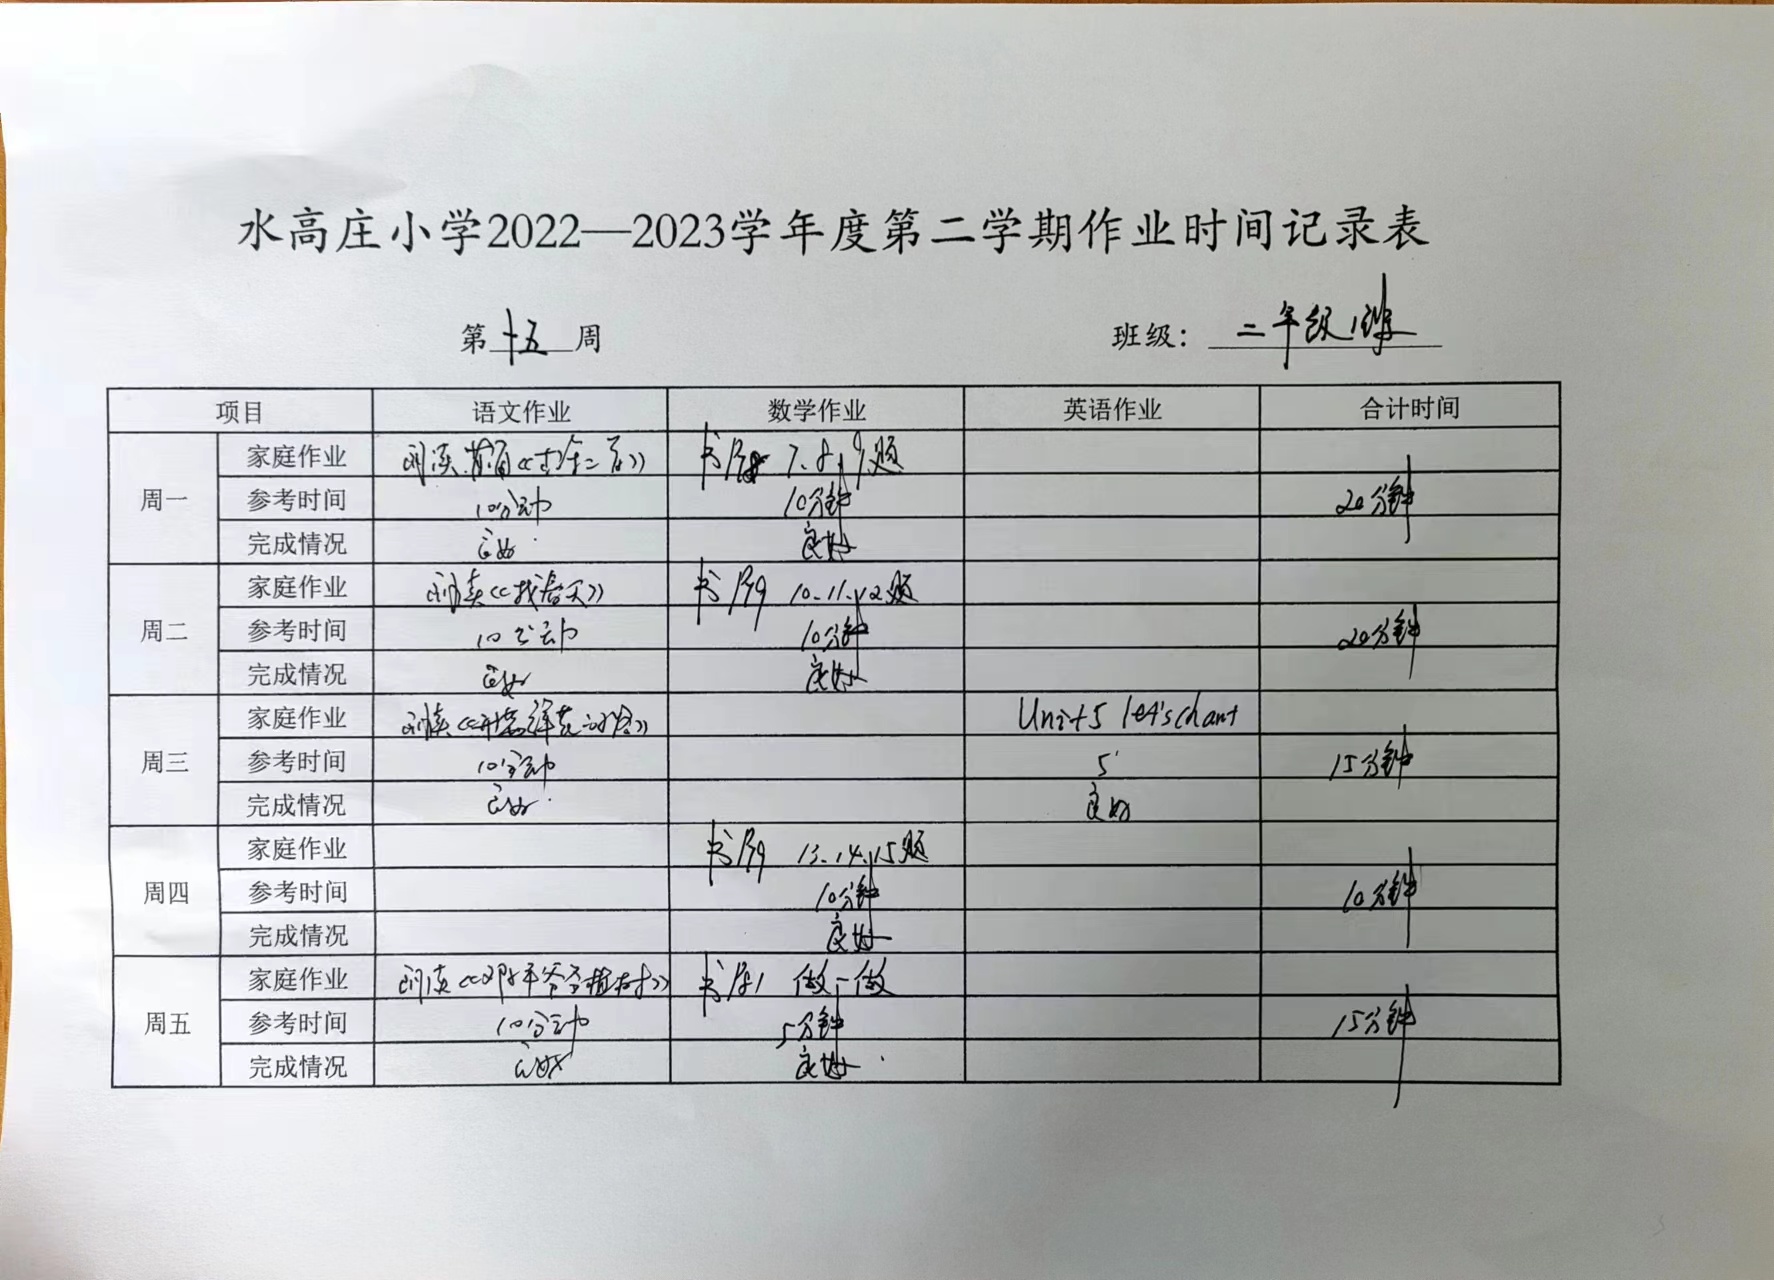 水高庄小学2022—2023学年度第二学期作业时间记录表
第十五周 班级：二年级1班
项目 语文作业 数学作业 英语作业 合计时间
周一
家庭作业 朗读.背诵《古诗二首》 书P78 7.8.9.题
参考时间 10分钟 10分钟 20分钟
完成情况 良好 良好
周二
家庭作业 朗读《找春天》 书P79 10.11.12题
参考时间 10分钟 10分钟 20分钟
完成情况 良好 良好
周三
家庭作业 朗读《开满鲜花的小路》 Unit5 let's chant
参考时间 10分钟 5' 15分钟
完成情况 良好 良好
周四
家庭作业 书P79 13.14.15题
参考时间 10分钟 10分钟
完成情况 良好
周五
家庭作业 朗读《邓小平爷爷植树》 书P81 做一做
参考时间 10分钟 5分钟 15分钟
完成情况 良好 良好